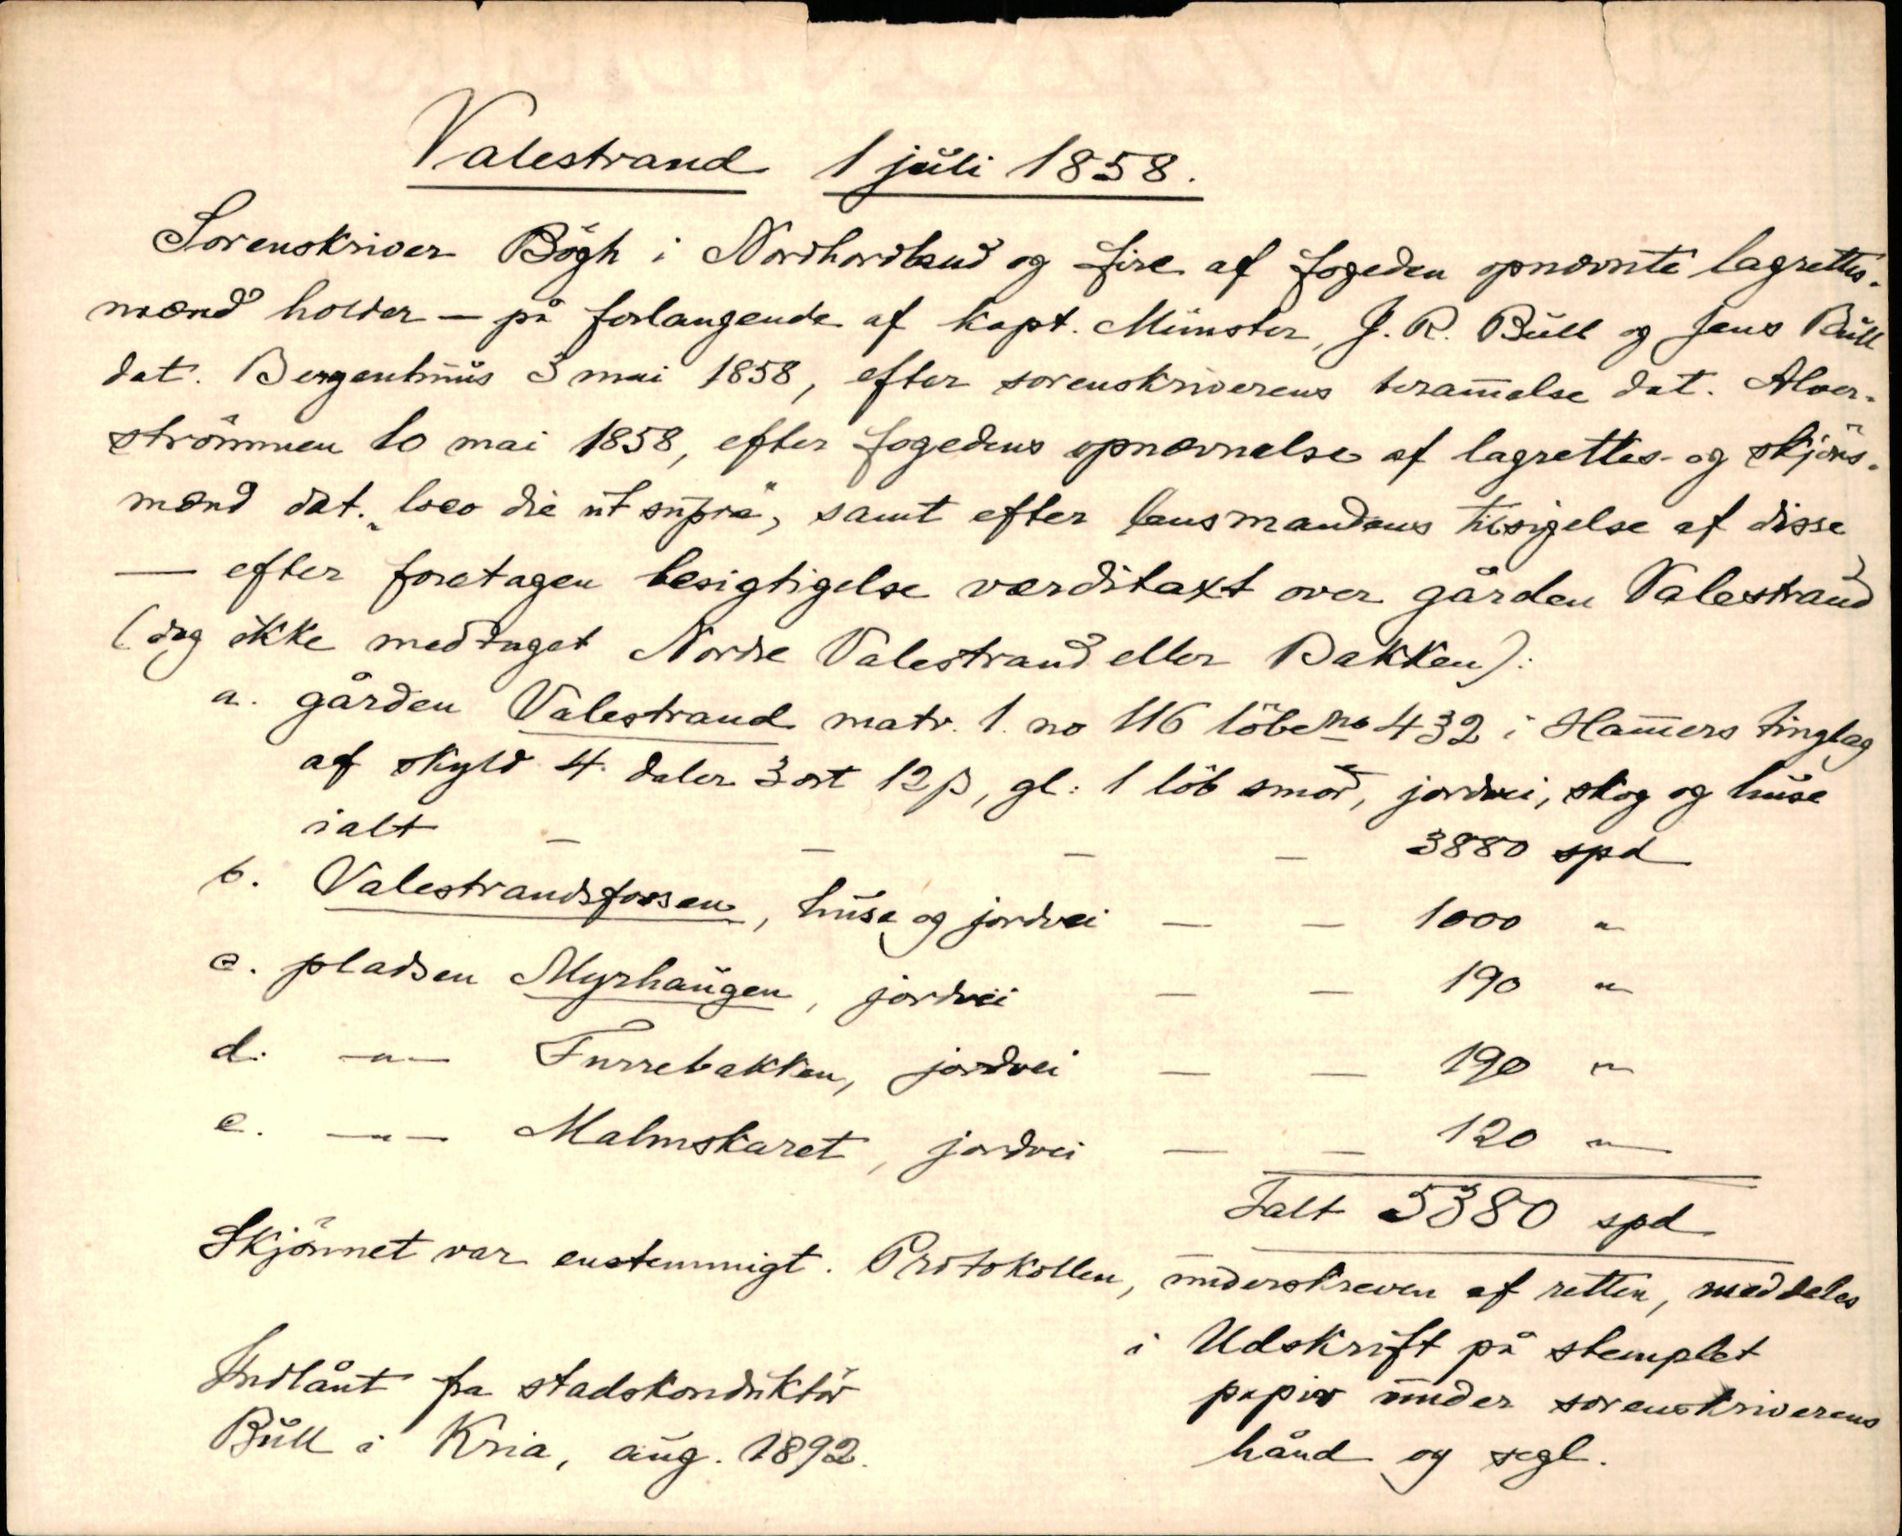 Valestrand 1 juli 1858.
Sorenskriver Bögh i Nordhordland og fire af fogeden opnævnte lagrettes-
mænd holder — på forlangende af kapt. Münster, J. R. Bull og Jens Bull
dat. Bergenhuus 3 mai 1858, efter sorenskriverens beram̅else dat. Alver-
strömmen 10 mai 1858, efter fogedens opnævnelse af lagrettes- og skjöns-
mænd dat. „loco die ut supra", samt efter lensmandens tilsigelse af disse
— efter foretagen besigtigelse værditaxt over gården Valestrand
(dog ikke medtaget Nordre Valestrand eller Bakken):
a. gården Valestrand matr. l. no 116 löbeno 432 i Ham̅ers tinglag
af skyld 4 daler 3 ort 12 β, gl: 1 löb smör, jordvei, skog og huse
ialt — — — — 3880 spd
b. Valestrandsfossen, huse og jordvei — — 1000 "
c. pladsen Myrhaugen, jordvei — — 190 "
d. —"— Furrebakken, jordvei — — 190 "
e. —"— Malmskaret, jordvei — — 120 "
Ialt 5380 spd
Skjönnet var enstemmigt. Protokollen, underskreven af retten, meddeles
i Udskrift på stemplet
papir under sorenskriverens
hånd og segl.
Indlånt fra stadskonduktör
Bull i Kria, aug. 1892.